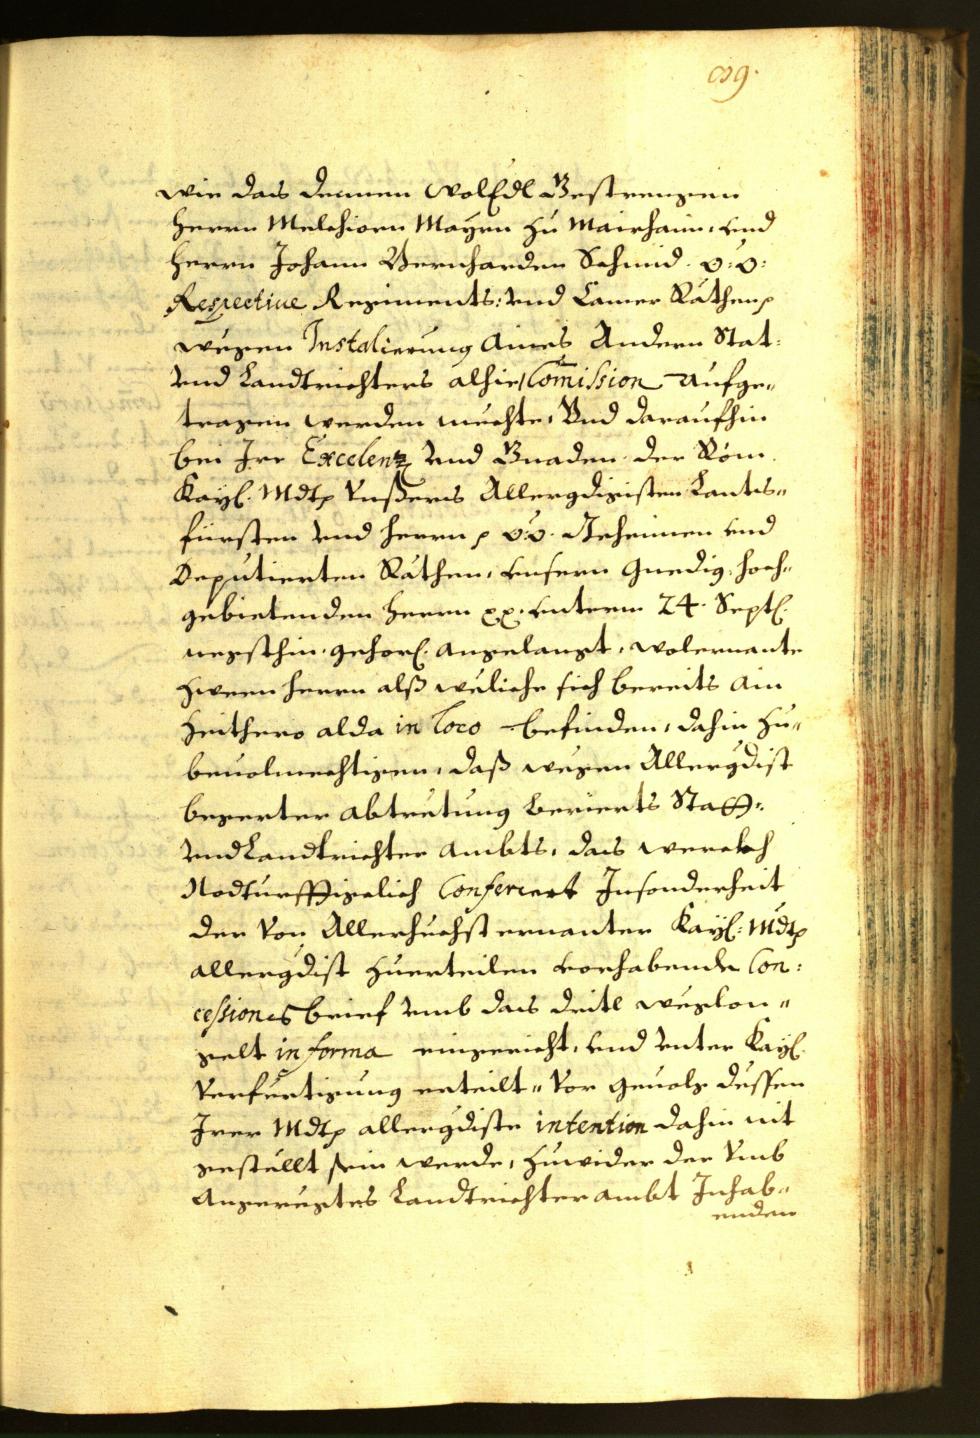 wie das dennen WolEdl Gestrengen
Herrn Melchiorn Mayrn zu Mairhain, vnd
Herrn Johann Bernharden Schmid. o: ö:
Respectiue Regiments: vnd Camer Räthen p
wegen Instalierung Aines Andern Stat:
vnd Landtrichters alhie, Comission aufge„
tragen werden mechte, Vnd daraufhin
bei Irr Excelenz vnd Gnaden der Röm.
Kayl. Mdt p Vnßers Allergdigisten Lants„
fürsten vnd Herrn p o: ö. Geheimen vnd
Deputierten Räthen, vnsern Gnedig: hoch„
gebietenden Herrn xx. vnterm 24. Septl.
negsthin, gehorl. angelangt, wolernante
zween Herrn alß weliche sich bereits ain
Zeithero alda in loco befinden, dahin zu„
beuolmechtigen, daß wegen Allergdist
begerter abtretung berierts Statt:
vnd Landtrichter Ambts, das werckh
Nodturfftigelich Conferiert Insonderheit
der von Allerhechst ernanter Kayl: Mdt p
allergdist zuerteilen vorhabende Con:
cessions brief vmb das dritl
gelt in forma eingericht, vnd vnter Kayl.
Verfertigung erteilt„ Vor geuolg dessen
Irer Mdt p allergdiste intention dahin nit
gestellt sein werde, zuwider der vmb
Angeregtes Landtrichter ambt Inhab„
enden